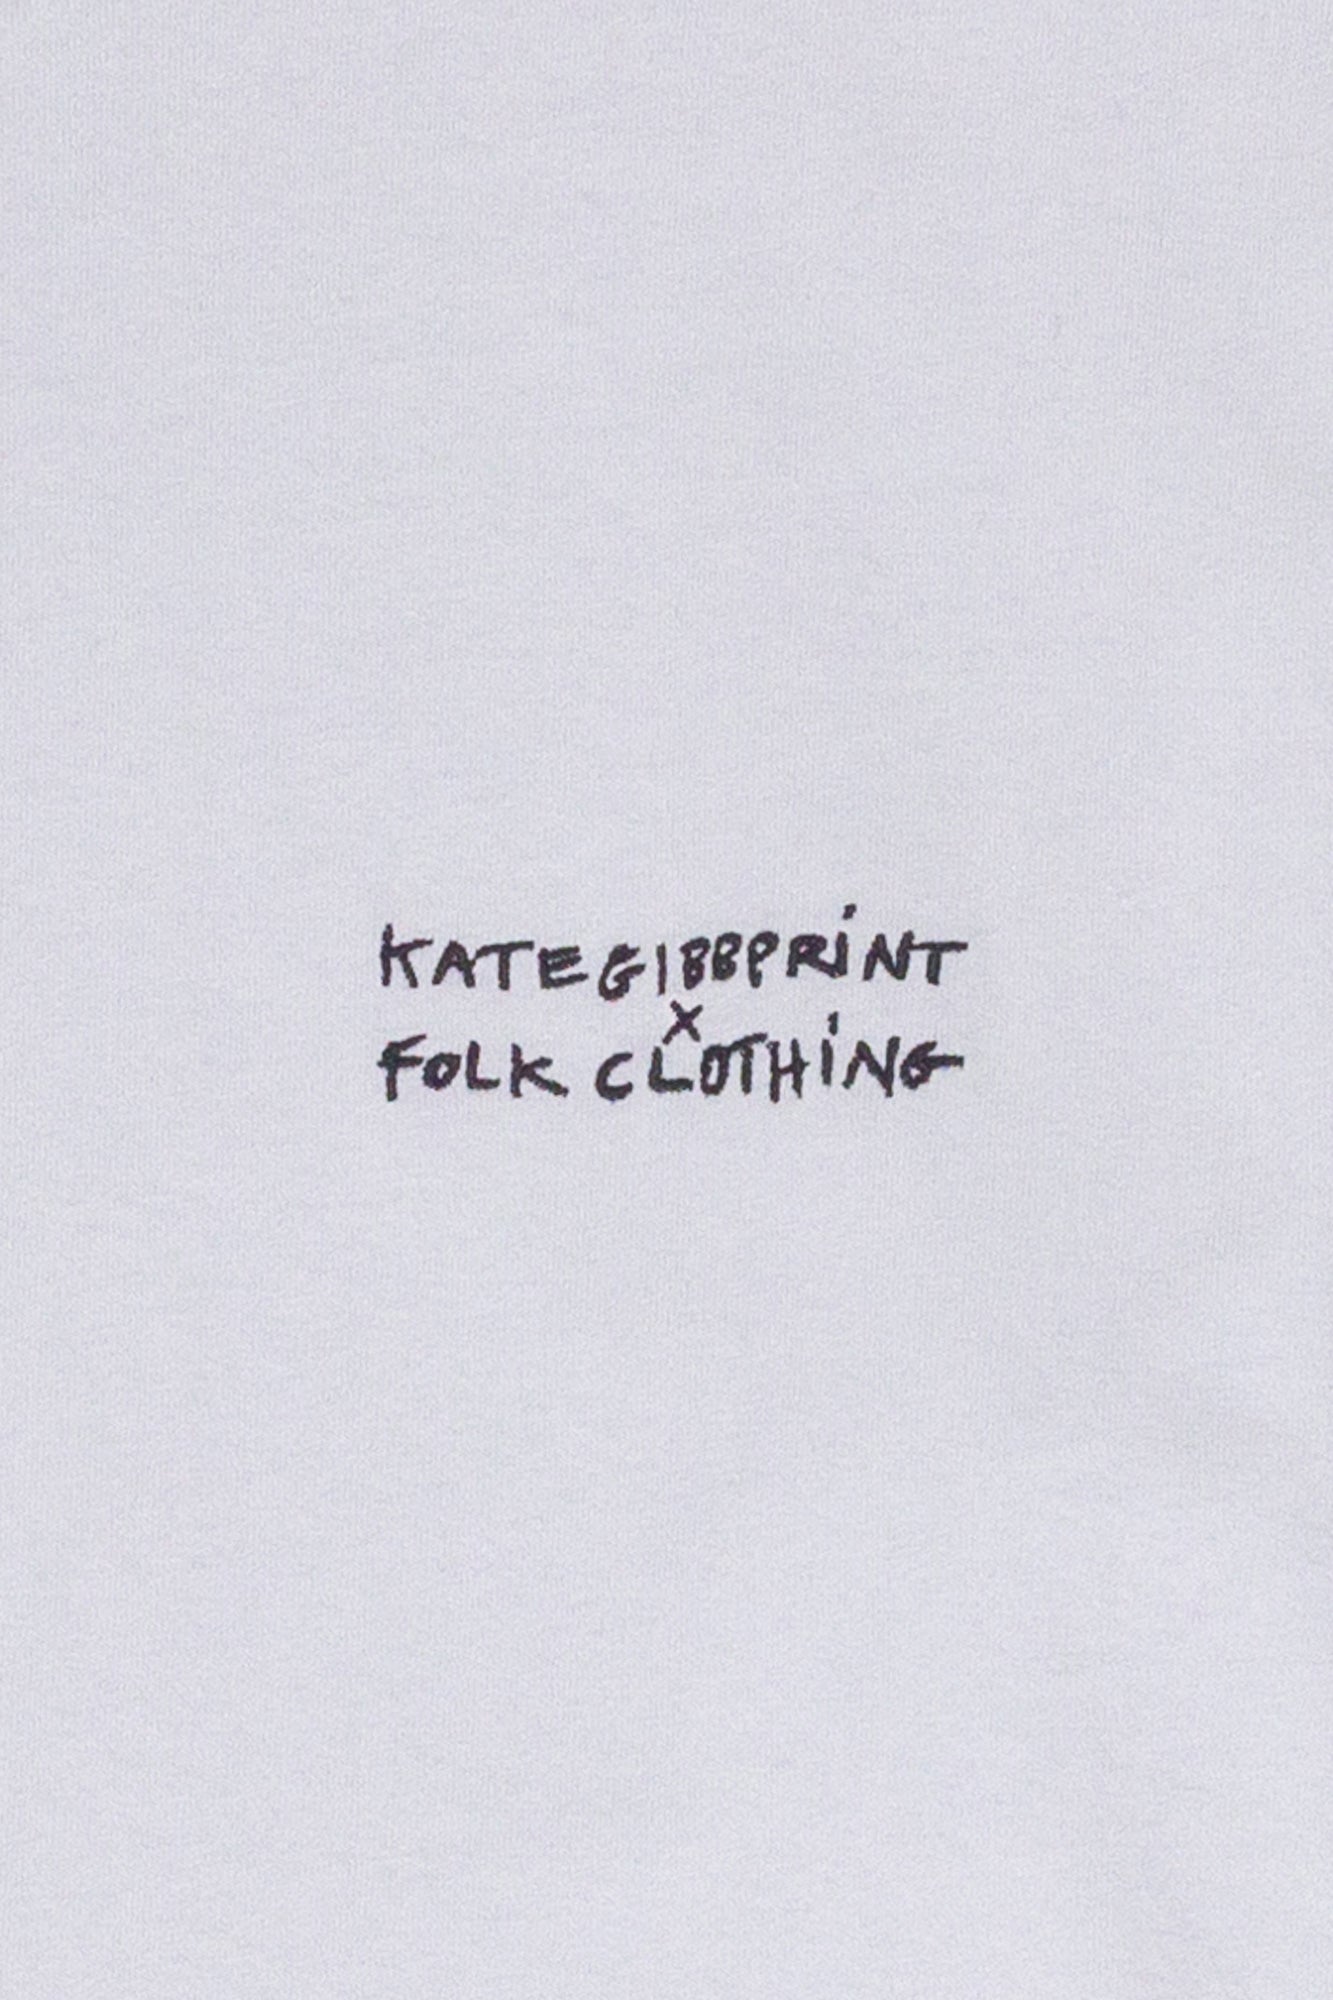 KATEGIBBPRiNT
x
FOLK CLOTHiNG